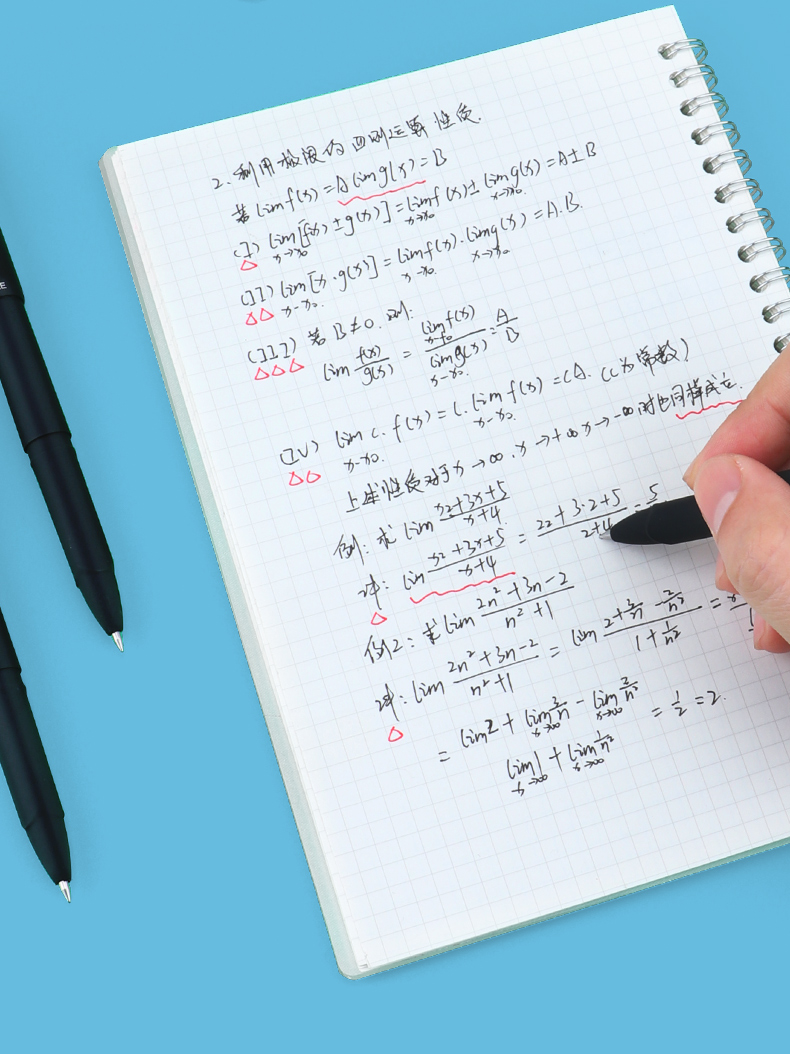 2. 利用极限的四则运算性质.
若 lim f(x) = A lim g(x) = B
(I) lim x→x₀ [f(x) ± g(x)] = lim x→x₀ f(x) ± lim x→x₀ g(x) = A ± B
(II) lim x→x₀. [x · g(x)] = lim x→x₀ f(x) · lim x→x₀ g(x) = A.B.
(III) 若 B ≠ 0. 则:
lim f(x)/g(x) = lim x→x₀ f(x) / lim x→x₀. g(x) = A/B
(IV) lim x→x₀. c. f(x) = c. lim x→x₀. f(x) = cA. (c为常数)
上述性质对于 x → ∞. x → +∞ x → -∞ 时也同样成立.
例: 求 lim x2+3x+5 / x+4
解: lim x2+3x+5 / x+4 = 22+3·2+5 / 2+4 = 5
例2: 求 lim 2n²+3n-2 / n²+1
解: lim 2n²+3n-2 / n²+1 = lim 2+3/n-2/n² / 1+1/n² =
= lim 2 + lim x→∞ 3/n - lim x→∞ 2/n² / lim x→∞ 1 + lim x→∞ 1/n² = 1/2 = 2.